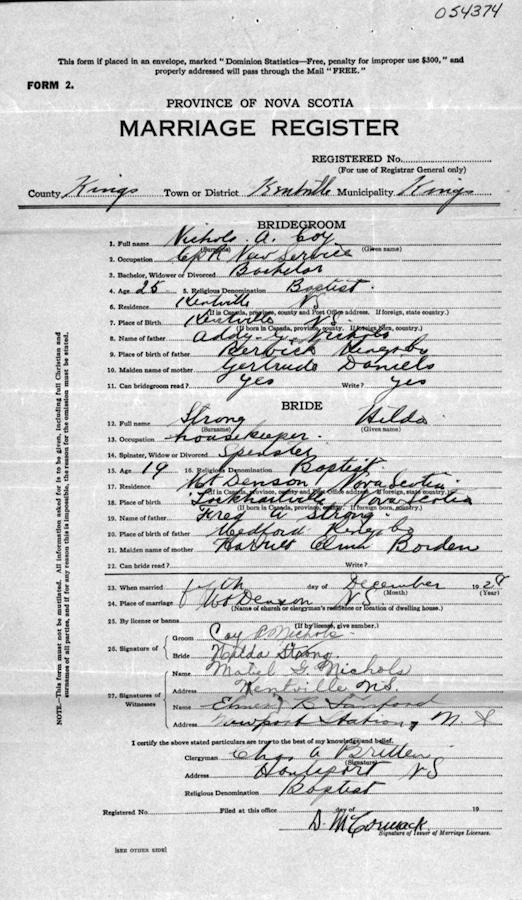 054374
This form if placed in an envelope, marked "Dominion Statistics—Free, penalty for improper use $300," and
properly addressed will pass through the Mail "FREE."
FORM 2.
PROVINCE OF NOVA SCOTIA
MARRIAGE REGISTER
REGISTERED No.
(For use of Registrar General only)
County Kings Town or District Kentville Municipality Kings
BRIDEGROOM
1. Full name Nichols A. Coy
(Surname) (Given name)
2. Occupation C.P.R. Nav Service
3. Bachelor, Widower or Divorced Bachelor
4. Age 25 5. Religious Denomination Baptist
6. Residence Kentville NS
(If in Canada, province, county and Post Office address. If foreign, state country.)
7. Place of Birth Kentville NS.
(If born in Canada, province, county. If foreign born, country.)
8. Name of father Nichols
9. Place of father Berwick Kings Co
10. Maiden name of mother Gertrude Daniels
11. Can bridegroom read? Yes Write? Yes
BRIDE
12. Full name Strong Hilda
(Surname) (Given name)
13. Occupation housekeeper.
14. Spinster, Widow or Divorced Spinster
15. Age 19 16. Religious Denomination Baptist
17. Residence Mt Denson Nova Scotia
(If in Canada, province, county and Post Office address. If foreign, state country.)
18. Place of birth Nova Scotia
(If born in Canada, province, county. If foreign born, country.)
19. Name of father Fred A Strong
20. Place of birth of father Medford Kings Co
21. Maiden name of mother Harriet Elma Borden
22. Can bride read? Write?
23. When married fifth day of December 1928
(Month) (Year)
24. Place of marriage Mt Denson NS.
(Name of church or clergyman's residence or location of dwelling house.)
25. By license or banns
(If by license, give number.)
26. Signature of
Groom Coy A Nichols
Bride Hilda Strong
27. Signatures of Witnesses
Name G. Nichols
Address Kentville N.S.
Name
Address Newport Station, N. S
I certify the above stated particulars are true to the best of my knowledge and belief.
Clergyman Chas A Britten
(Signature)
Address Hantsport NS
Religious Denomination Baptist
Registered No. Filed at this office day of 19
D. McCormack
Signature of Issuer of Marriage Licenses.
[SEE OTHER SIDE]
NOTE.—This form must not be mutilated. All information asked for is to be given including full Christian and
surnames of all parties, and if for any reason this is impossible, the reason for the omission must be stated.